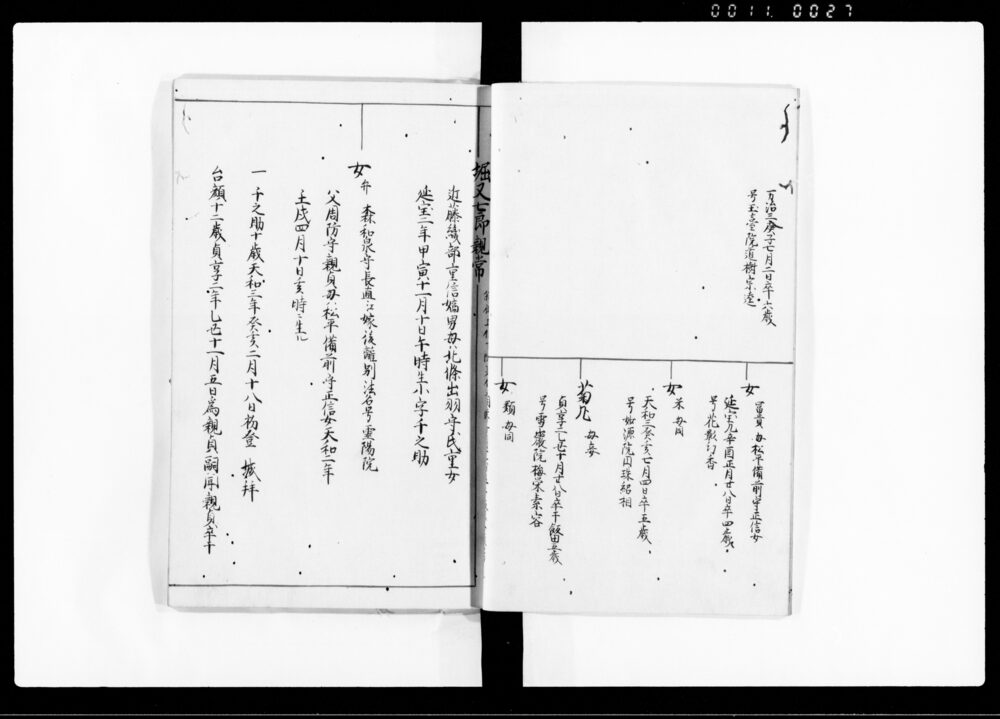 0011 0027
万治三庚子七月二日卒六歳
号玉臺院道樹宗達
女
母松平備前守正信女
延宝九辛酉正月廿八日卒四歳
号花散幻香
女
母同
天和三癸亥七月四日卒五歳
源院円珠紹相
菊
母妾
貞享二乙丑十月廿八日卒于飯田
号雪巌院梅栄素容
女
類 母同
堀又七郎親常
近藤織部重信嫡男母北條出羽守氏重女
延宝二年甲寅十一月十日午時生小字千之助
女
弁 森和泉守長直江嫁後離別法名号霊陽院
父周防守親貞母松平備前守正信女天和二年
壬戌四月十日亥時ニ生ル
一 千之助十歳天和三年癸亥二月十八日初登 城拝
台顔十二歳貞享二年乙丑十一月五日為親貞嗣同親貞卒于